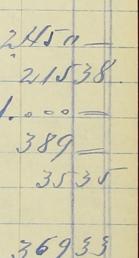 2450 —
21538
1.000 =
389 =
3535
36933